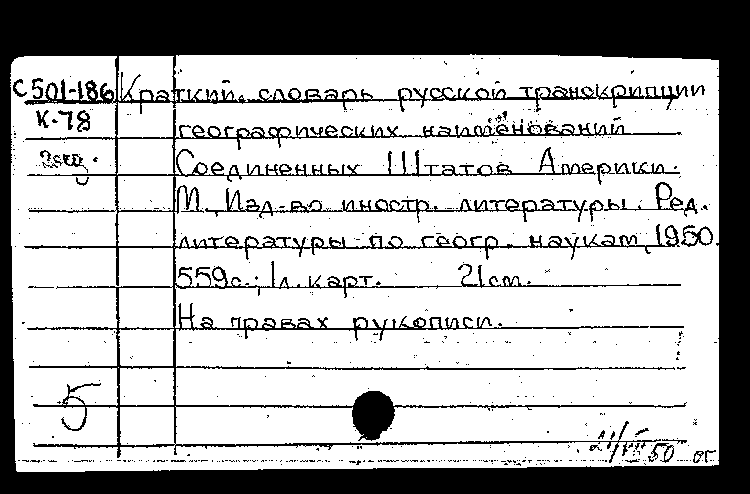 С501-186 Краткий словарь русской транскрипции
К-78 географических наименований
Соединенных Штатов Америки.
М., Изд-во иностр. литературы. Ред.
литературы по геогр. наукам, 1950.
559с.; 1л. карт. 21см.
На правах рукописи.
5
21/VII 50 ог